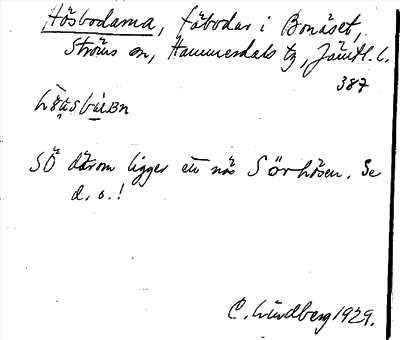 Hösbodarna, fäbodar i Bonäset,
Ströms sn, Hammerdals tg, Jämtl. l.
387
SÖ därom ligger ett näs Sörhösen. Se
d. o.!
C. Lindberg 1929.